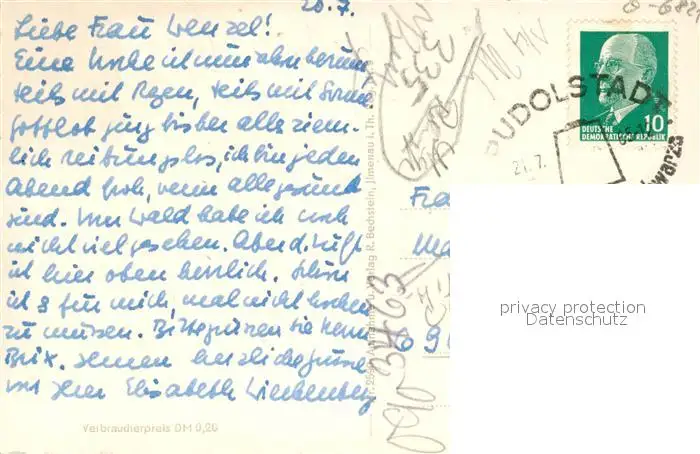 20.7.
Liebe Frau Wenzel!
Eine Woche ist nun schon herum
teils mit Regen, teils mit Sonne
gottlob ging bisher alles ziem-
lich reibungslos, ich bin jeden
Abend froh, wenn alle gesund
sind. Vom Wald habe ich noch
nicht viel gesehen. Aber d. Luft
ist hier oben herrlich. Schön
ist s für mich, mal nicht kochen
zu müssen. Bitte grüßen Sie Herrn
Brix. Ihnen herzliche Grüße
von Ihrer Elisabeth
Verbraucherpreis DM 0,20
R. Bechstein, Ilmenau i. Th.
RUDOLSTADT
21.7.
DEUTSCHE
DEMOKRATISCHE REPUBLIK
10
Fra
69
privacy protection
Datenschutz